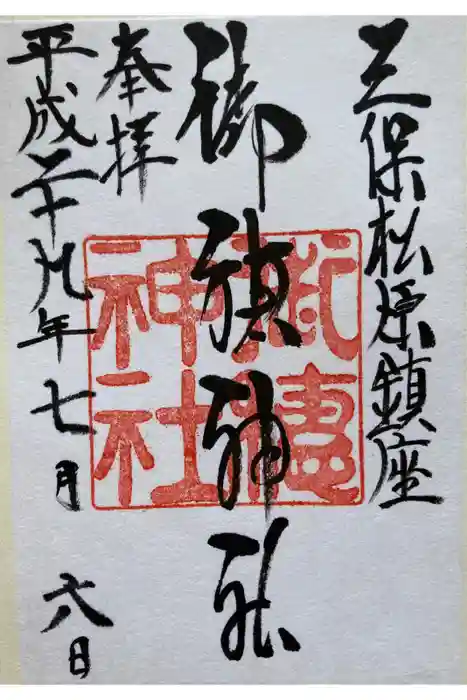 三保松原鎮座
御穂神社
奉拝
平成二十九年七月六日
御穗
神社